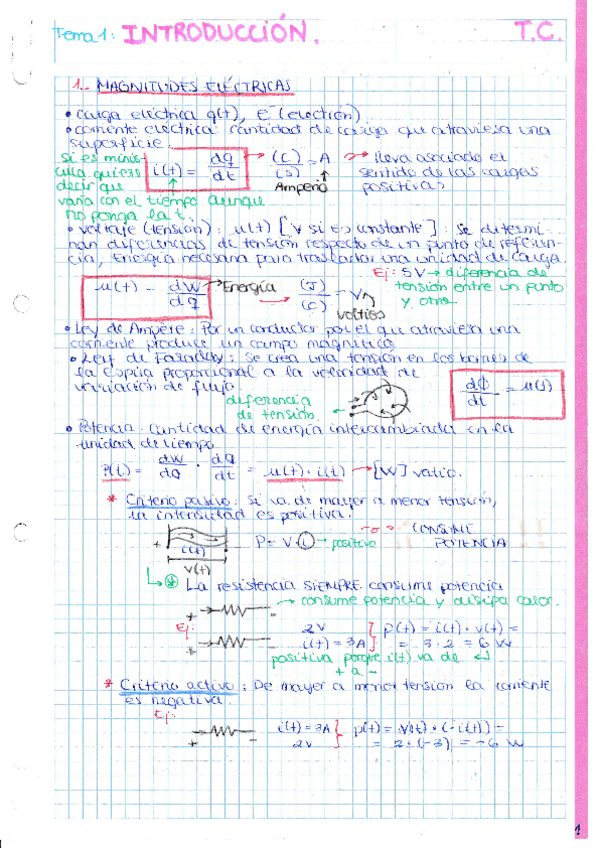 Tema 1: INTRODUCCIÓN. T.C.
1.- MAGNITUDES ELÉCTRICAS
• Carga eléctrica q(t), e⁻ (electrón)
• corriente eléctrica: cantidad de carga que atraviesa una
superficie.
si es minús-
cula quiere
decir que
varía con el tiempo aunque
no ponga la t.
i(t) = dq/dt → (C)/(s) = A
Amperio
→ lleva asociado el
sentido de las cargas
positivas
• Voltaje (tensión): u(t) [V si es constante]: Se determi-
nan diferencias de tensión respecto de un punto de referen-
cia, Energía necesaria para trasladar una unidad de carga.
u(t) = dW/dq → Energía (J)/(C) = V
voltios
Ej: 5V → diferencia de
tensión entre un punto
y otro
• Ley de Ampère: Por un conductor por el que atraviesa una
corriente produce un campo magnético
• Ley de Faraday: Se crea una tensión en los bornes de
la espira proporcional a la velocidad de
variación de flujo.
diferencia
de tensión.
dΦ/dt = u(t)
• Potencia: Cantidad de energía intercambiada en la
unidad de tiempo
P(t) = dW/dq · dq/dt = u(t) · i(t) → [W] vatio.
* Criterio pasivo: Si va de mayor a menor tensión,
la intensidad es positiva.
+ i(t) -
v(t)
P = V i → positivo
CONSUME
POTENCIA
La resistencia SIEMPRE consume potencia
+ - → consume potencia y disipa calor.
Ej:
+ -
2V
i(t) = 3A
p(t) = i(t) · v(t) =
= 3 · 2 = 6 W
positiva porque i(t) va de
+ a -
* Criterio activo: De mayor a menor tensión la corriente
es negativa.
Ej:
+ -
i(t) = 3A
2V
p(t) = v(t) · (-i(t)) =
= 2 · (-3) = -6 W
1